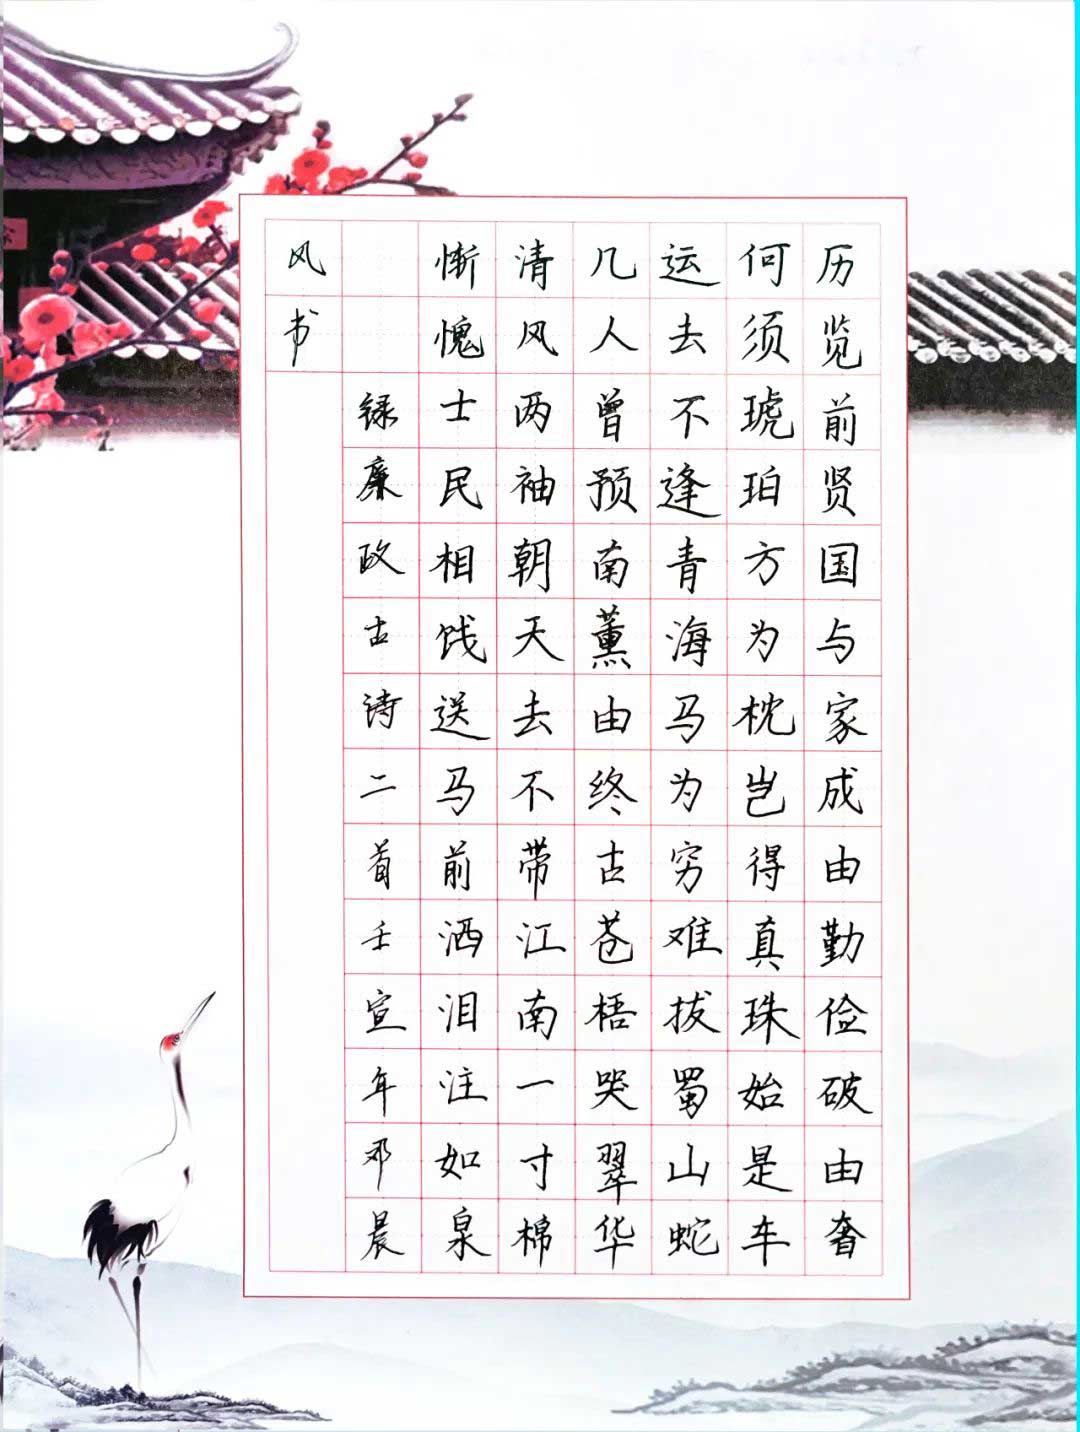 历览前贤国与家成由勤俭破由奢
何须琥珀方为枕岂得真珠始是车
运去不逢青海马为穷难拔蜀山蛇
几人曾预南薰由终古苍梧哭翠华
清风两袖朝天去不带江南一寸棉
惭愧士民相饯送马前洒泪注如泉
廉政古诗二首壬宣年邓晨
风书